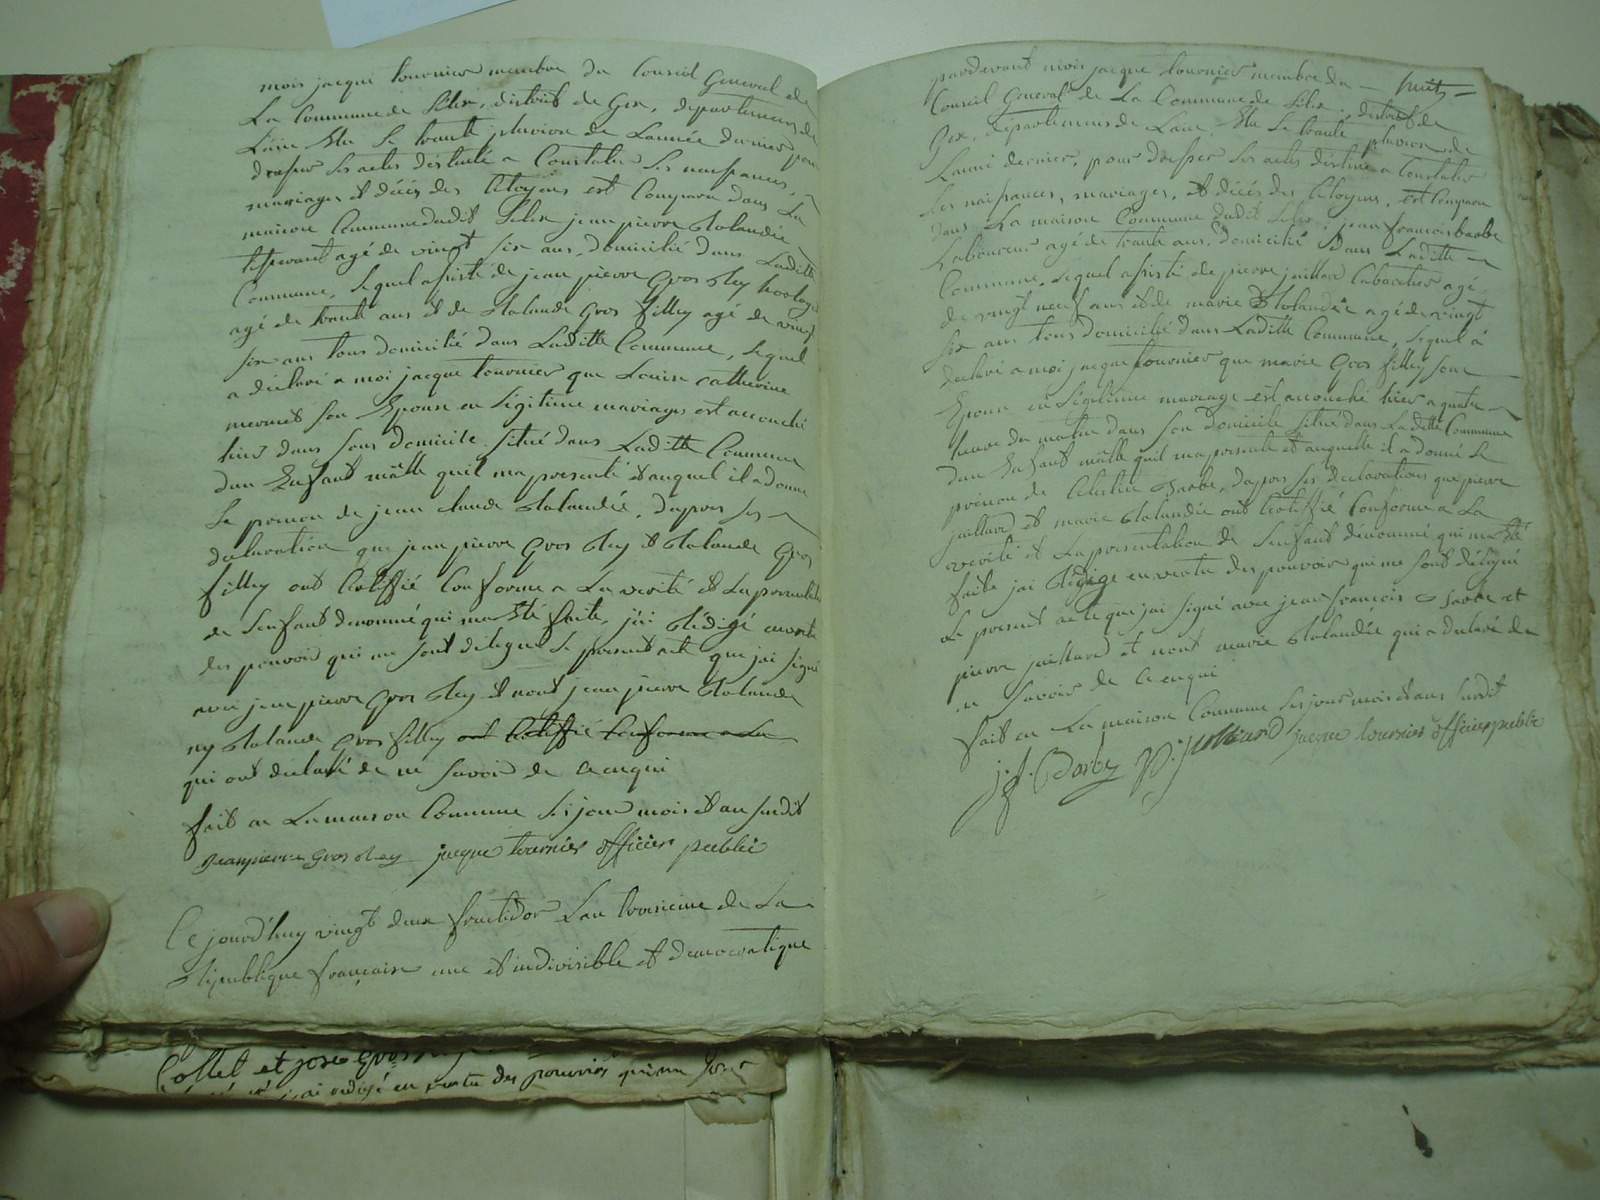 mois jacque tournier membre du Conseil General de
La Commune de Lelex, district de Gex, departement de
Lain Elu le trante pluviose de Lannée dernier pour
dresser les actes déstiné a Constater les naissances,
mariages et décés des Citoyens est Comparu dans La
maison Commune dudit Lelex jean pierre Rolandée
tisserant agé de vingt six ans, domicilié dans Laditte
Commune, lequel assisté de jean pierre Gros Rey horloge
agé de trante ans et de Rolande Gros fillex agé de vingt
six ans tous domicilié dans Laditte Commune, lequel
a déclaré a moi jacque tournier que Louise catherine
son Epouse en Légitime mariages est accouché
hier dans sons domicile situé dans Laditte Commune
dun Enfant mâlle quil ma présenté et auquel il a donné
Le prenon de jean claude Rolandée, dapres les
declaration que jean pierre Gros Rey et Rolande Gros
filley ont Certiffié Conforme a La verité et La presentation
de Lenfant denommé qui ma été faite, jai Rédigé en vertu
des pouvoir qui me sont delegué le present acte que jai signé
avec jean pierre Gros Rey et nont jean pierre Rolande
ny Rolande Gros filley ont Certiffié Conforme a La
qui ont declaré de ne savoir de ce enqui
fait en La maison Commune les jour mois et an susdit
jeanpierre Gros Rey jacque tournier officier publici
Ce jourd'huy vingt deux fructidor Lan troisieme de La
Republique francaise une et indivisible et democratique
Collet et jose Gros
jai redigé en vertu des pouvoirs qui me sons
huit
pardevant mois jacque tournier membre du
Conseil General de La Commune de Lelex, district de
Gex, departement de Lain, Elu le trante pluviose de
Lanné dernier, pour dresser les actes destiné a Constater
les naissances, mariages, et décés des Citoyens, est Comparu
dans La maison Commune dudit Lelex, jean francois barbe
Laboureur agé de trante ans, domicilié dans Laditte
Commune, lequel assisté de pierre juillard Cabaretier agé
de vingt neuf ans et de marie Rolandée agé de vingt
six ans tous domicilié dans Laditte Commune, lequel a
declaré a moi jacque tournier que marie Gros filley son
Epouse en Légitime mariage est accouché hier a quatre
heure du matin dans son domicile situé dans Laditte Commune
dun Enfant mâlle quil ma presenté et auquelle il a donné le
prénon de Celestin Barbe, dapres les declarations que pierre
juillard et marie Rolandée ont Certiffié Conforme a La
verité et La presentation de Lenfant dénommé qui ma été
faite jai Rédigé en vertu des pouvoir qui me sont délégué
Le present acte que jai signé avec jean francois Barbe et
pierre juillard et nont marie Rolandée qui a declaré de
ne savoir de ce enqui
fait en La maison Commune les jour mois et ans susdit
j. f. Barbe P. juilliard jacque tournier officier public